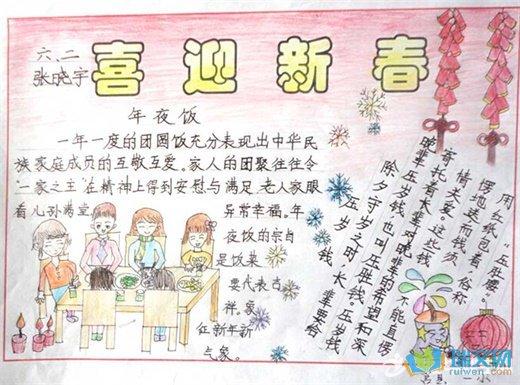 六、二
张晓宇
喜迎新春
年夜饭
一年一度的团圆饭充分表现出中华民
族家庭成员的互敬互爱。家人的团聚往往令
“一家之主”在精神上得到安慰与满足,老人家眼
看儿孙满堂
异常幸福。年
夜饭的宗旨
是饭菜
要代表吉
祥、象
征新年新
气象。
压岁钱
除夕守岁之时,长辈要给
晚辈压岁钱,也叫压胜钱,压岁钱
寄托着长辈对晚辈的希望和深
情关爱。这些钱不能直愣
愣地送而钱须
用红纸包着,俗称“压腰
一小
瑞文网
ruiwen.com